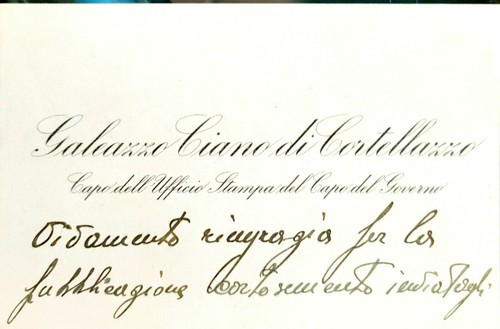 Galeazzo Ciano di Cortellazzo
Capo dell'Ufficio Stampa del Capo del Governo
ringrazia per la
pubblicazione cortesemente inviatagli